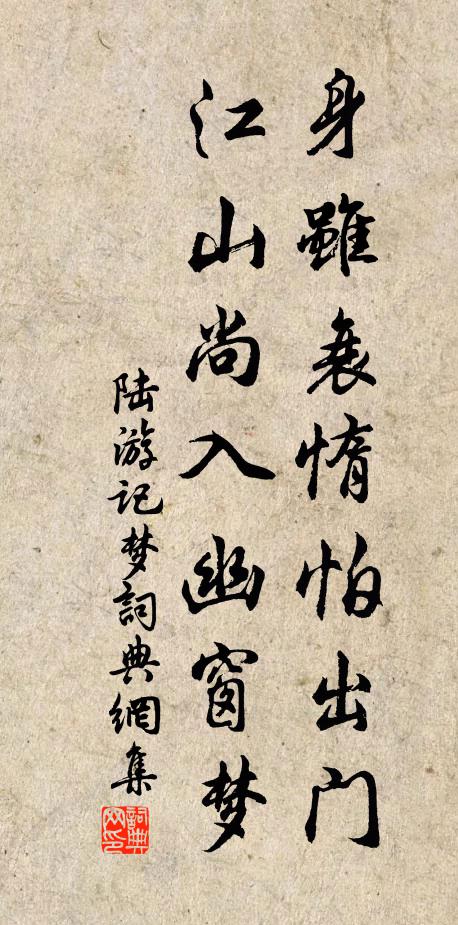 身雖衰惰怕出門
江山尚入幽窗梦
陆游记梦詞典網集
詞典网印